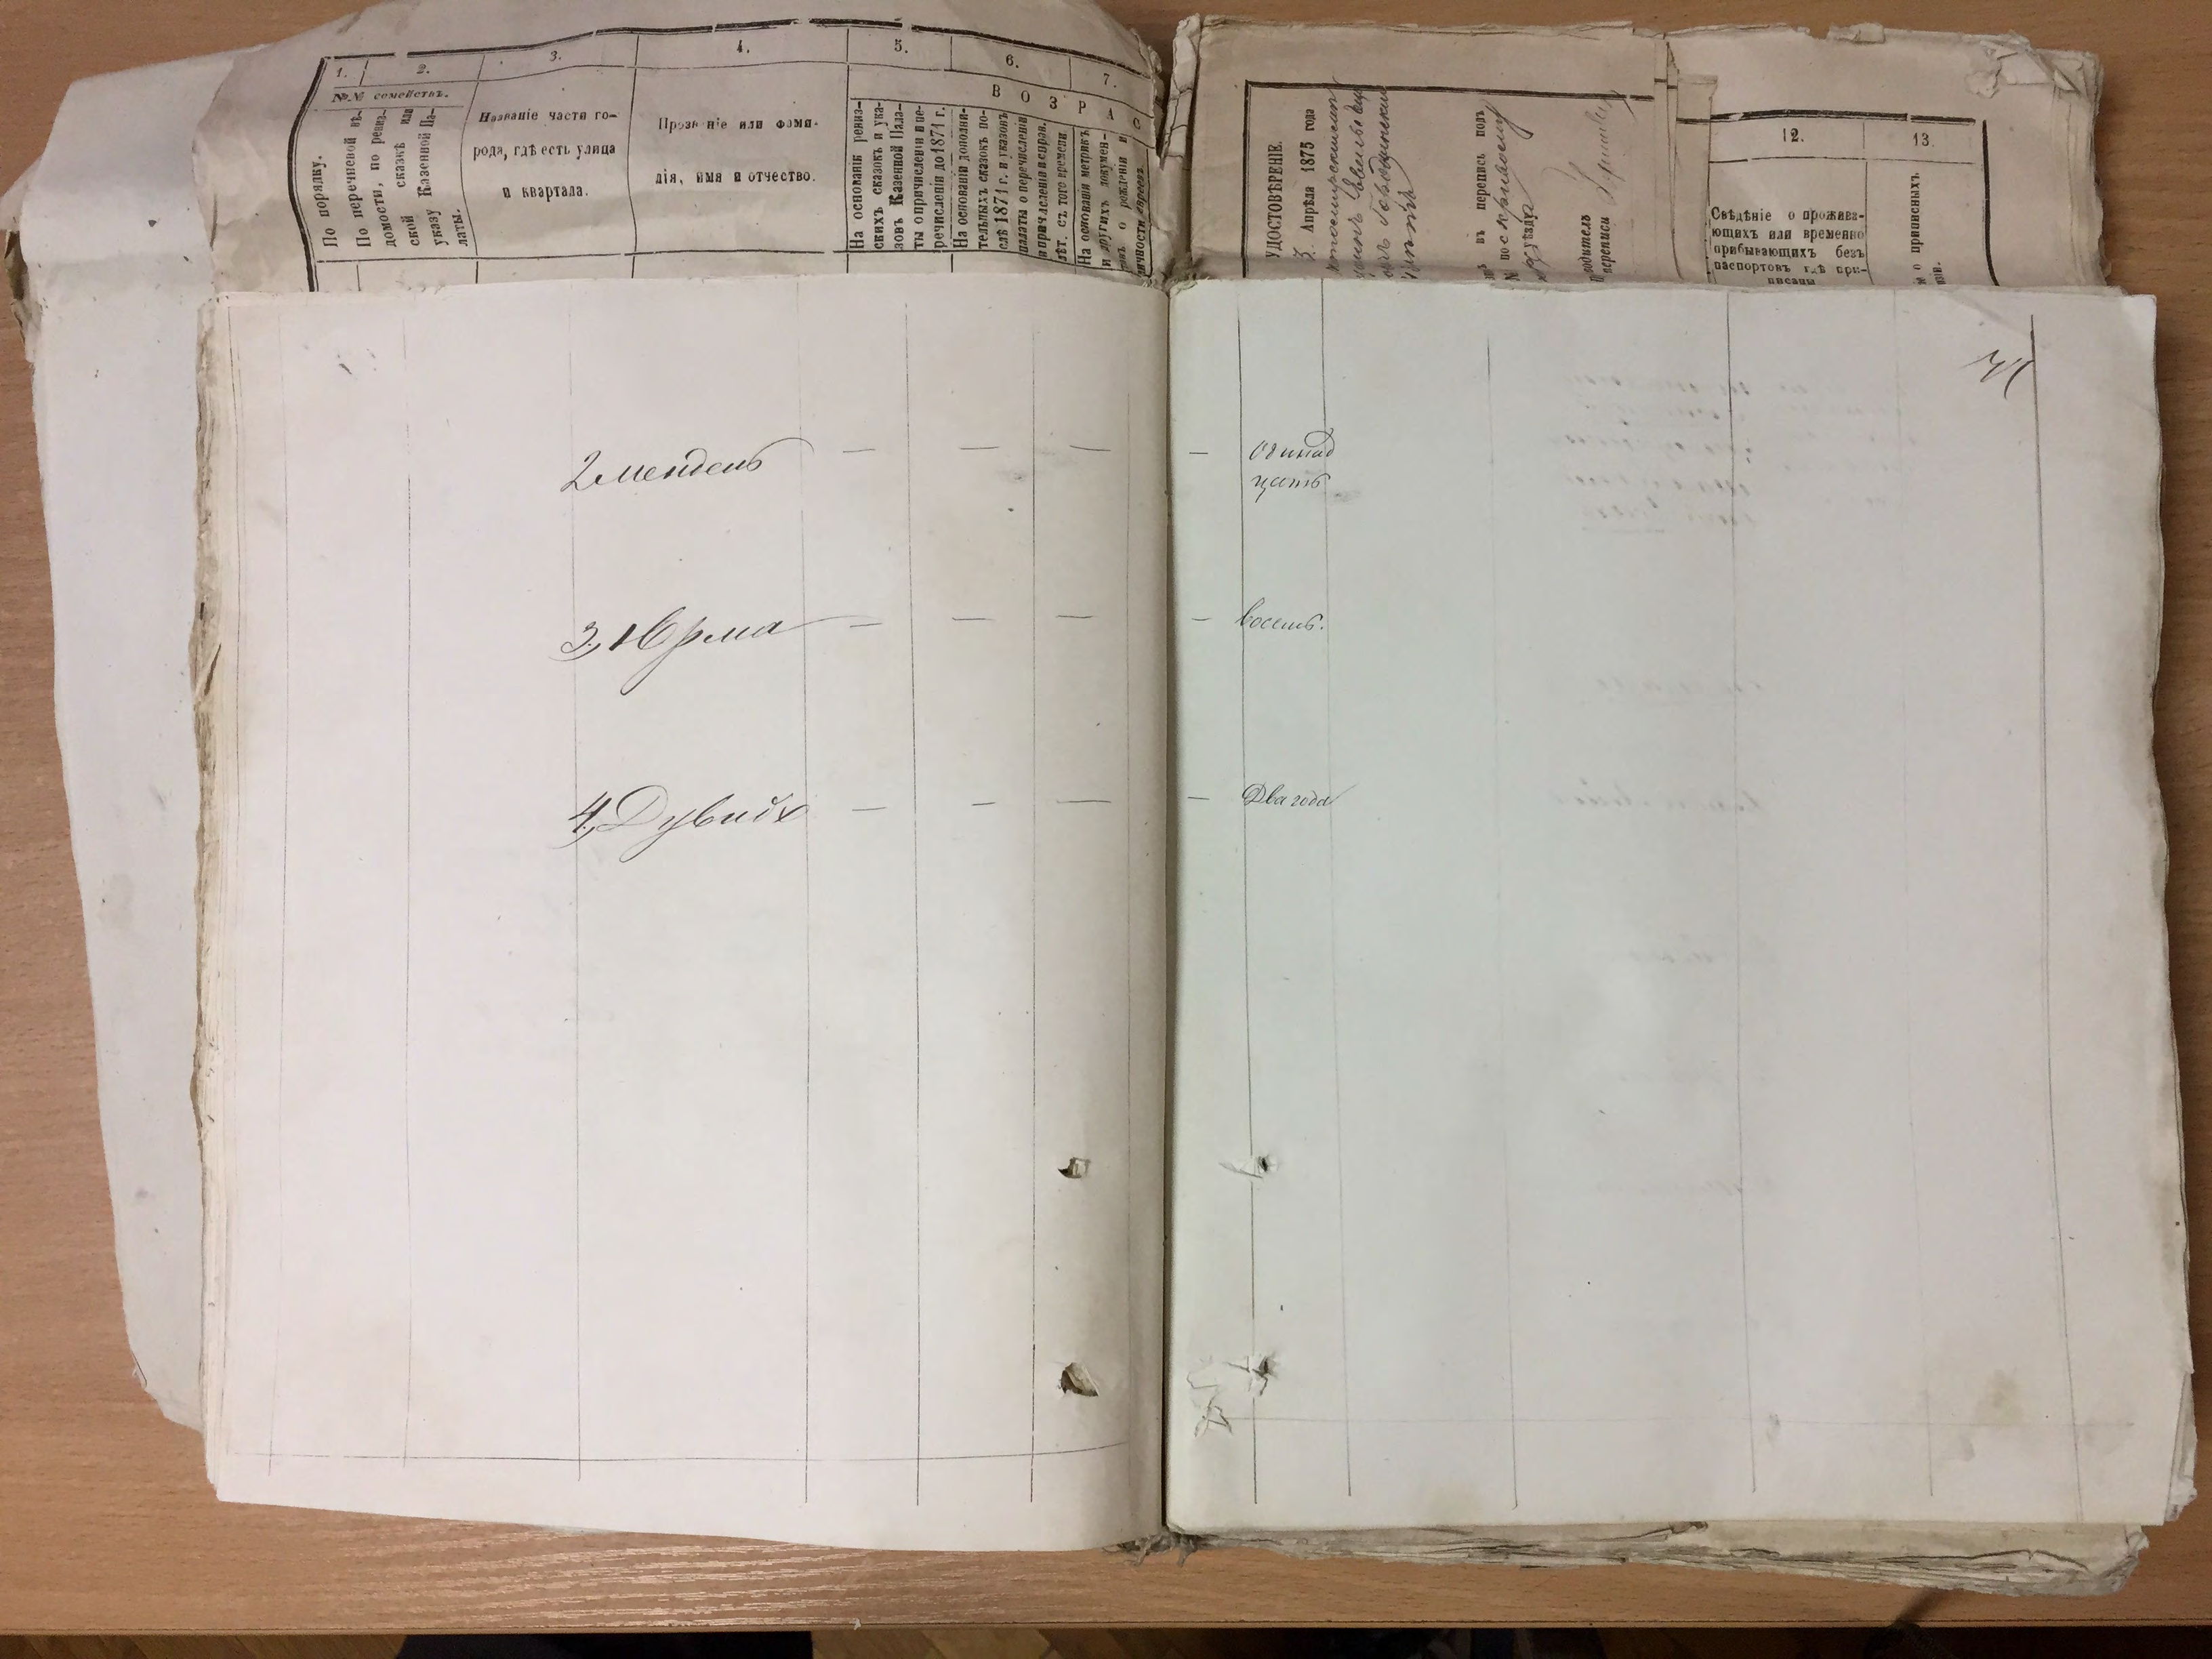 1.
2.
3.
4.
5.
6.
7.
№№ семействъ.
В О З Р А С
По порядку.
По перечневой вѣ-
домости, по ревиз-
ской сказкѣ или
указу Казенной Па-
латы.
Названіе части го-
рода, гдѣ есть улица
и квартала.
Прозв ніе или фами-
лія, имя и отчество.
На основаніи ревиз-
скихъ сказокъ и ука-
зовъ Казенной Пала-
ты о причисленіи и пе-
речисленіи до 1871 г.
На основаніи дополни-
тельныхъ сказокъ по-
слѣ 1871 г. и указовъ
палаты о перечисленіи
и причисленіи и справ.
лѣт. съ того времени.
На основаніи метрикъ
и другихъ докумен-
о рожденіи и
УДОСТОВѢРЕНІЕ.
3. Апрѣля 1875 года
въ перепись подъ
N по
уѣзду
переписи
12.
13.
Свѣдѣніе о прожива-
ющихъ или временно
прибывающихъ безъ
паспортовъ гдѣ при-
писаны
о приписныхъ
2 Мендель — — — — одинад
цать
3, Юрма — — — — восемь.
4, Дувидъ — — — — Два года